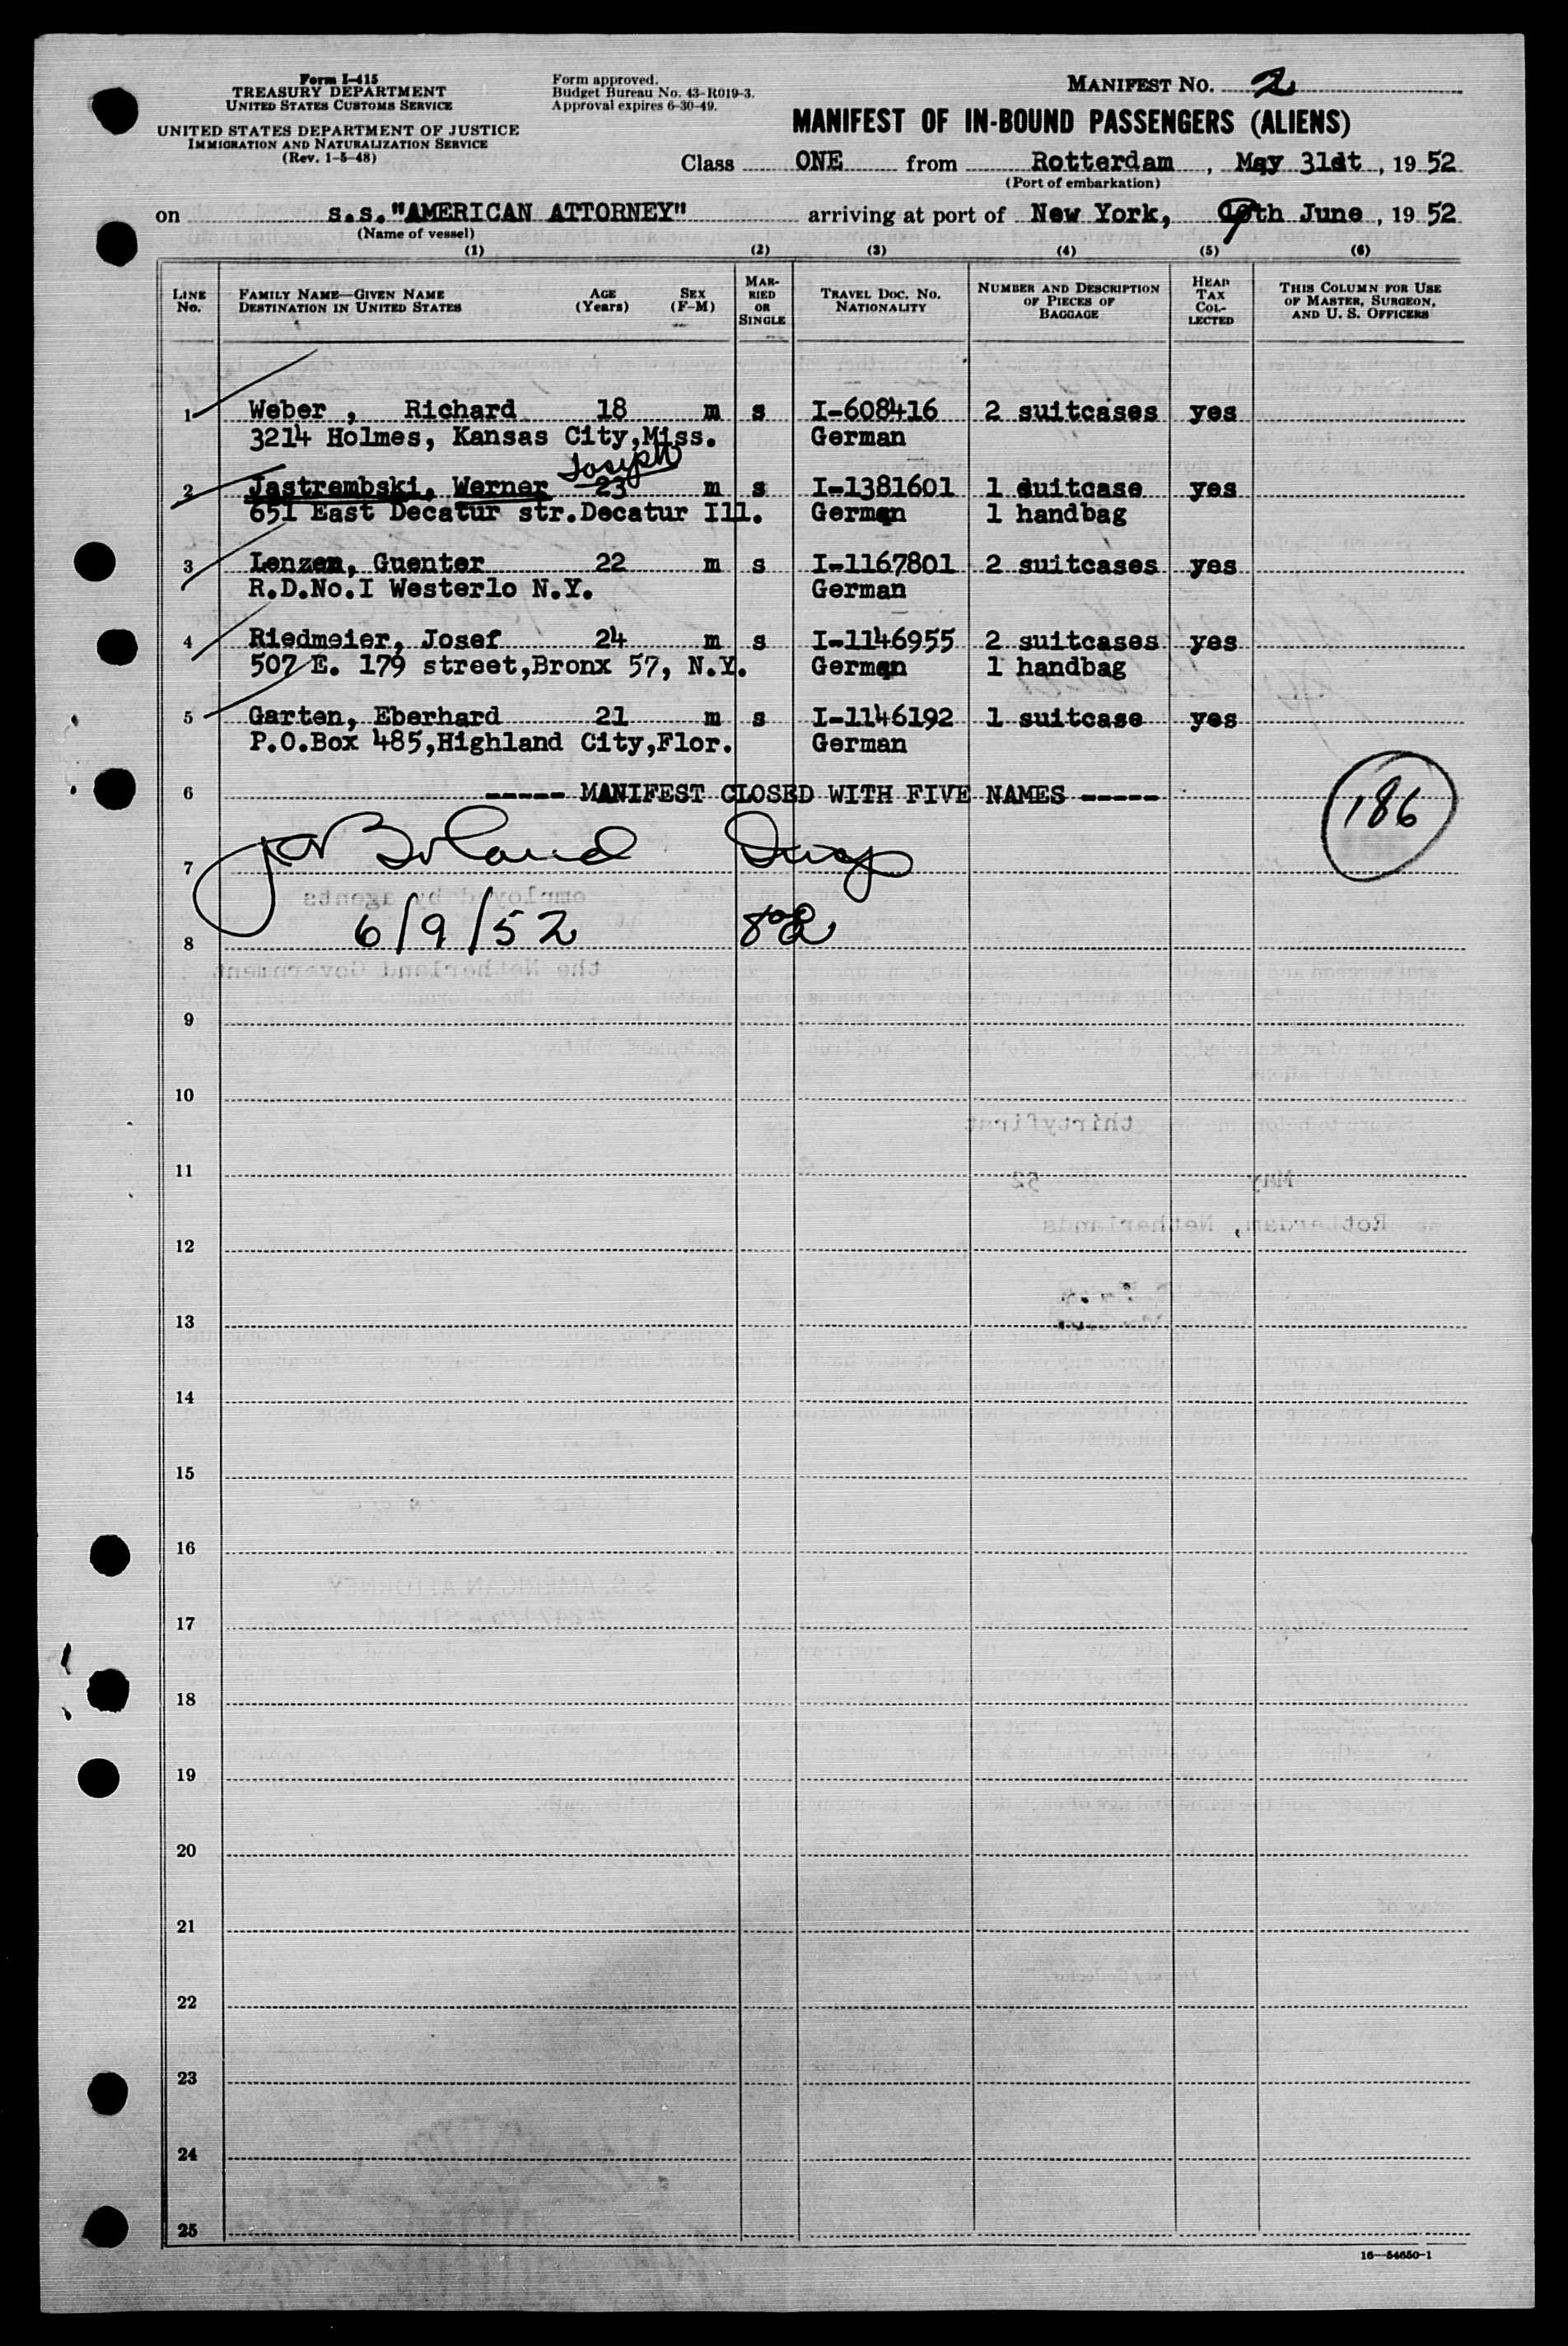 Form I-415
TREASURY DEPARTMENT
UNITED STATES CUSTOMS SERVICE
UNITED STATES DEPARTMENT OF JUSTICE
IMMIGRATION AND NATURALIZATION SERVICE
(Rev. 1-5-48)
Form approved.
Budget Bureau No. 43-R019-3.
Approval expires 6-30-49.
MANIFEST NO. 2
MANIFEST OF IN-BOUND PASSENGERS (ALIENS)
Class ONE from Rotterdam, May 31st, 1952
(Port of embarkation)
on s.s."AMERICAN ATTORNEY" arriving at port of New York, 9th June, 1952
(Name of vessel)
(1) (2) (3) (4) (5) (6)
LINE No. FAMILY NAME—GIVEN NAME DESTINATION IN UNITED STATES AGE (Years) SEX (F-M) MARRIED OR SINGLE TRAVEL DOC. NO. NATIONALITY NUMBER AND DESCRIPTION OF PIECES OF BAGGAGE HEAD TAX COLLECTED THIS COLUMN FOR USE OF MASTER, SURGEON, AND U. S. OFFICERS
1 Weber , Richard 18 m s I-608416 2 suitcases yes
3214 Holmes, Kansas City,Miss. German
Joseph
2 Jastrembski, Werner 23 m s I-1381601 1 suitcase yes
651 East Decatur str.Decatur Ill. German 1 handbag
3 Lenzen, Guenter 22 m s I-1167801 2 suitcases yes
R.D.No.I Westerlo N.Y. German
4 Riedmeier, Josef 24 m s I-1146955 2 suitcases yes
507 E. 179 street,Bronx 57, N.Y. German 1 handbag
5 Garten, Eberhard 21 m s I-1146192 1 suitcase yes
P.O.Box 485,Highland City,Flor. German
6 ----- MANIFEST CLOSED WITH FIVE NAMES -----
186
7 Boland Insp
8 6/9/52
9
10
11
12
13
14
15
16
17
18
19
20
21
22
23
24
25
16—54650-1